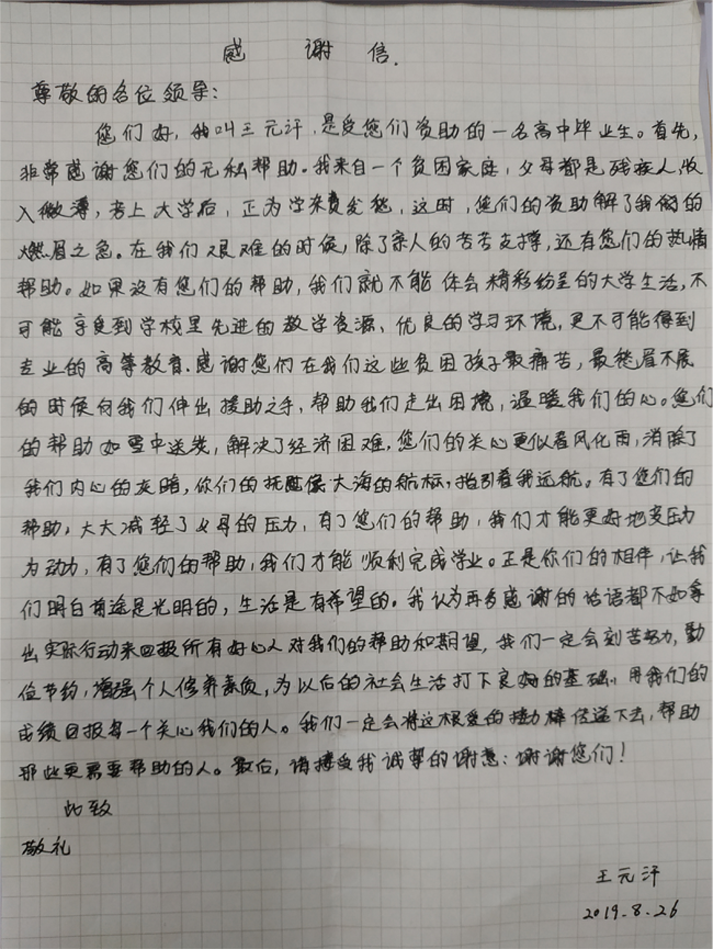 感 谢 信.
尊敬的各位领导:
您们好,我叫王元汗,是受您们资助的一名高中毕业生。首先,
非常感谢您们的无私帮助。我来自一个贫困家庭,父母都是残疾人,收
入微薄,考上大学后,正为学杂费发愁,这时,您们的资助解了我们的
燃眉之急。在我们艰难的时候,除了亲人的苦苦支撑,还有您们的热情
帮助。如果没有您们的帮助,我们就不能体会精彩纷呈的大学生活,不
可能享受到学校里先进的教学资源、优良的学习环境,更不可能得到
专业的高等教育.感谢您们在我们这些贫困孩子最痛苦,最愁眉不展
的时候向我们伸出援助之手,帮助我们走出困境,温暖我们的心。您们
的帮助如雪中送炭,解决了经济困难,您们的关心更似春风化雨,消除了
我们内心的灰暗,你们的抚慰像大海的航标,指引着我远航。有了您们的
帮助,大大减轻了父母的压力,有了您们的帮助,我们才能更好地变压力
为动力,有了您们的帮助,我们才能顺利完成学业。正是你们的相伴,让我
们明白前途是光明的,生活是有希望的。我认为再多感谢的话语都不如拿
出实际行动来回报所有好心人对我们的帮助和期望,我们一定会刻苦努力,勤
俭节约,增强个人修养素质,为以后的社会生活打下良好的基础,用我们的
成绩回报每一个关心我们的人。我们一定会将这根爱的接力棒传递下去,帮助
那些更需要帮助的人。最后,请接受我诚挚的谢意:谢谢您们!
此致
敬礼
王元汗
2019.8.26